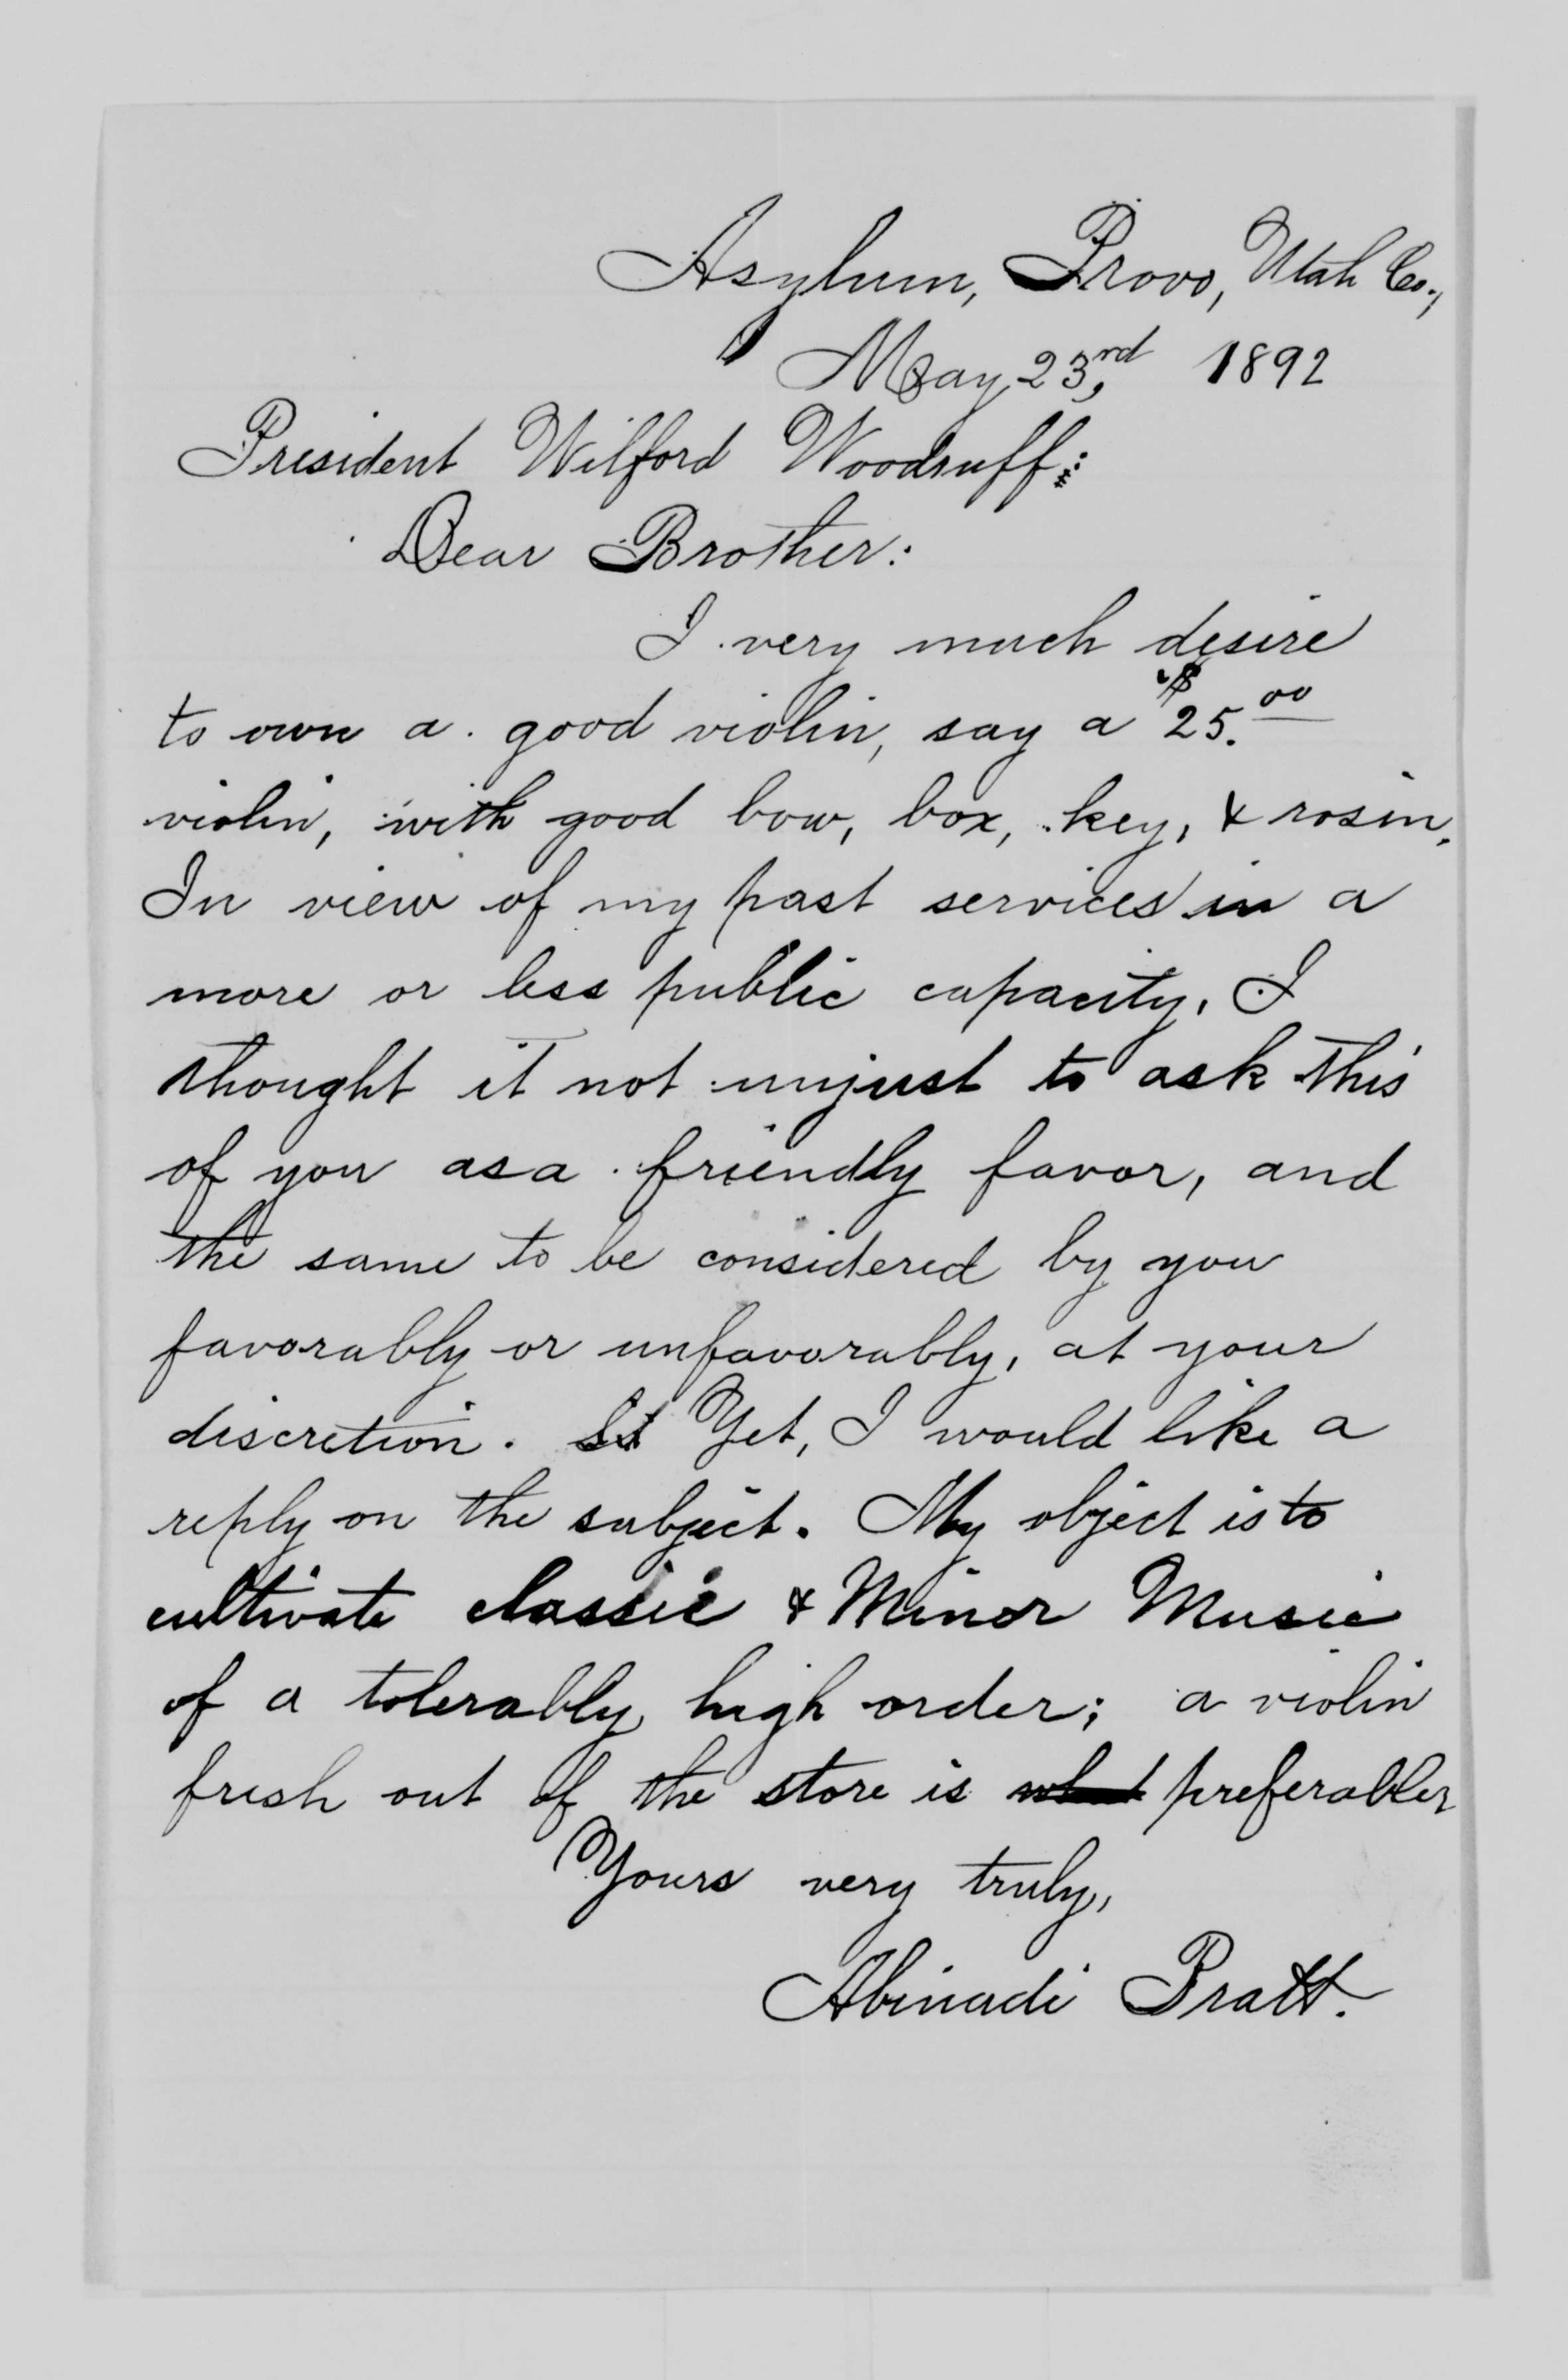 Asylum, Provo, Utah Co.,
May 23rd, 1892
President Wilford Woodruff:
Dear Brother:
I very much desire
to own a good violin, say a $25.00
violin, with good bow, box, key, & rosin.
In view of my past services in a
more or less public capacity, I
thought it not unjust to ask this
of you as a friendly favor, and
the same to be considered by you
favorably or unfavorably, at your
discretion. Yet, I would like a
reply on the subject. My object is to
cultivate classic & Minor Music
of a tolerably high order; a violin
fresh out of the store is preferable.
Yours very truly,
Abinadi Pratt.